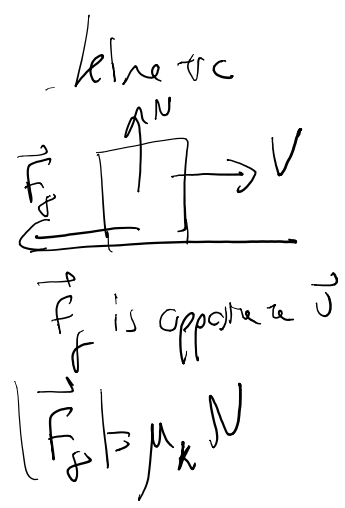 kinetic
N
V
\vec{F}_f
\vec{F}_f is opposite \vec{v}
|\vec{F}_f| = μ_k N